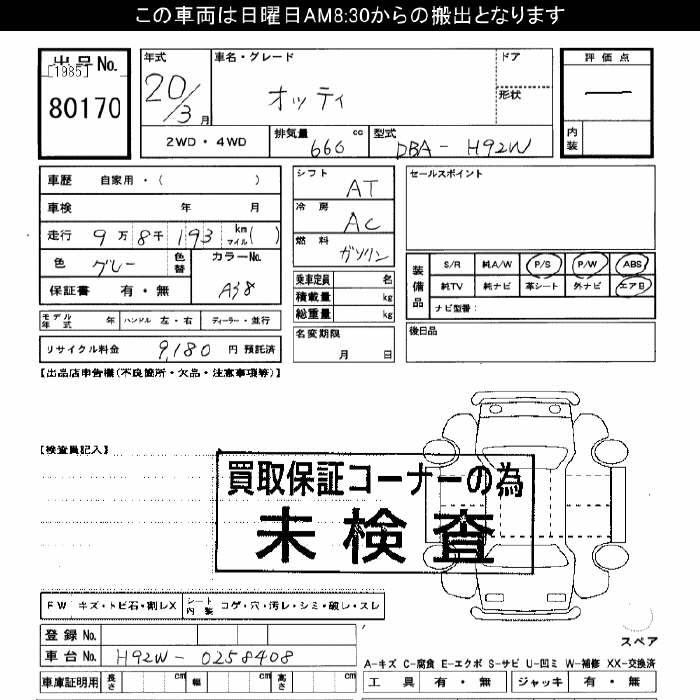 この車両は日曜日AM8:30からの搬出となります
出品No.
[1985]
80170
年式
20/3月
車名・グレード
オッティ
ドア
形状
評価点
—
内装
2WD・4WD
排気量
660 cc
型式
DBA- H92W
車歴 自家用・( )
車検 年 月
走行 9万8千193 km マイル( )
色 グレー
色替
カラーNo.
A38
保証書 有・無
モデル年式 年 ハンドル 左・右 ディーラー・並行
リサイクル料金 9,180 円 預託済
シフト
AT
冷房
AC
燃料
ガソリン
乗車定員 名
積載量 kg
総重量 kg
名変期限
月 日
セールスポイント
装備品
S/R 純A/W P/S P/W ABS
純TV 純ナビ 革シート 外ナビ エアB
ナビ型番:
後日品
【出品店申告欄(不良箇所・欠品・注意事項等)】
【検査員記入】
買取保証コーナーの為
未検査
FW キズ・トビ石・割レX シート内装 コゲ・穴・汚レ・シミ・破レ・スレ
登録No.
車台No. H92W- 0258408
車庫証明用 長さ cm 幅 cm 高さ cm
スペア
A-キズ C-腐食 E-エクボ S-サビ U-凹ミ W-補修 XX-交換済
工具 有・無 ジャッキ 有・無